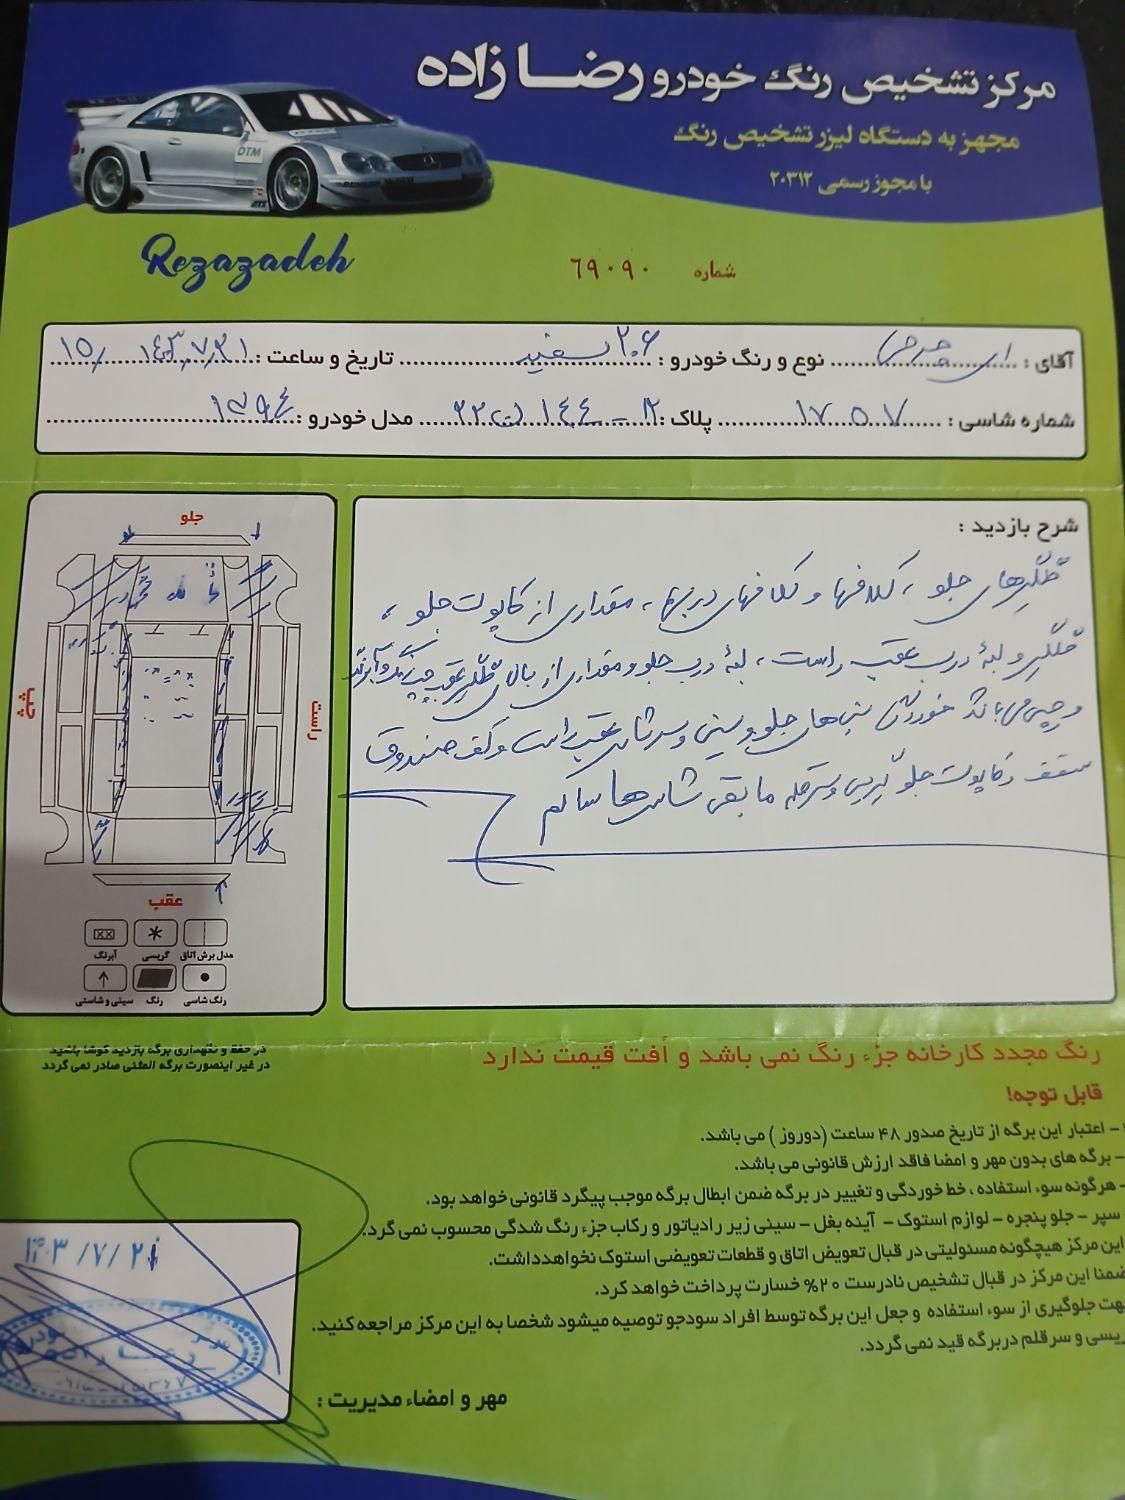 مرکز تشخیص رنگ خودرو رضا زاده
مجهز به دستگاه لیزر تشخیص رنگ
با مجوز رسمی ۲۰۳۱۲
DTM
Rezazadeh
شماره ۶۹۰۹۰
آقای : نوع و رنگ خودرو : ۲۰۶ سفید تاریخ و ساعت : ۱۴۰۳/۷/۲۱ ۱۵/
شماره شاسی : ۱۷۵۰۷ پلاک : مدل خودرو : ۱۳۹۴
شرح بازدید :
گلگیرهای جلو ، کلافها و کلافهای دربها ، مقداری از کاپوت جلو ،
گلگیر و لبهٔ درب عقب راست ، لبهٔ درب جلو و مقداری از بالای گلگیر عقب چپ رنگ و آبرنگ
خوردگی سینی های جلو و سینی و سرشاسی عقب راست و کف صندوق
سقف و کاپوت جلو گریس و سرقلم مابقی شاسی ها سالم
جلو
چپ
راست
عقب
مدل برش اتاق
گریسی
آبرنگ
رنگ شاسی
رنگ
سینی و شاستی
در حفظ و نگهداری برگه بازدید کوشا باشید
در غیر اینصورت برگه المثنی صادر نمی گردد
رنگ مجدد کارخانه جزء رنگ نمی باشد و اُفت قیمت ندارد
قابل توجه!
- اعتبار این برگه از تاریخ صدور ۴۸ ساعت (دوروز ) می باشد.
- برگه های بدون مهر و امضا فاقد ارزش قانونی می باشد.
- هرگونه سوء استفاده ، خط خوردگی و تغییر در برگه ضمن ابطال برگه موجب پیگرد قانونی خواهد بود.
سپر - جلو پنجره - لوازم استوک - آینه بغل - سینی زیر رادیاتور و رکاب جزء رنگ شدگی محسوب نمی گردد.
این مرکز هیچگونه مسئولیتی در قبال تعویض اتاق و قطعات تعویضی استوک نخواهدداشت.
ضمنا این مرکز در قبال تشخیص نادرست ۲۰% خسارت پرداخت خواهد کرد.
جهت جلوگیری از سوء استفاده و جعل این برگه توسط افراد سودجو توصیه میشود شخصا به این مرکز مراجعه کنید.
گریسی و سرقلم دربرگه قید نمی گردد.
۱۴۰۳/۷/۲۱
مهر و امضاء مدیریت :